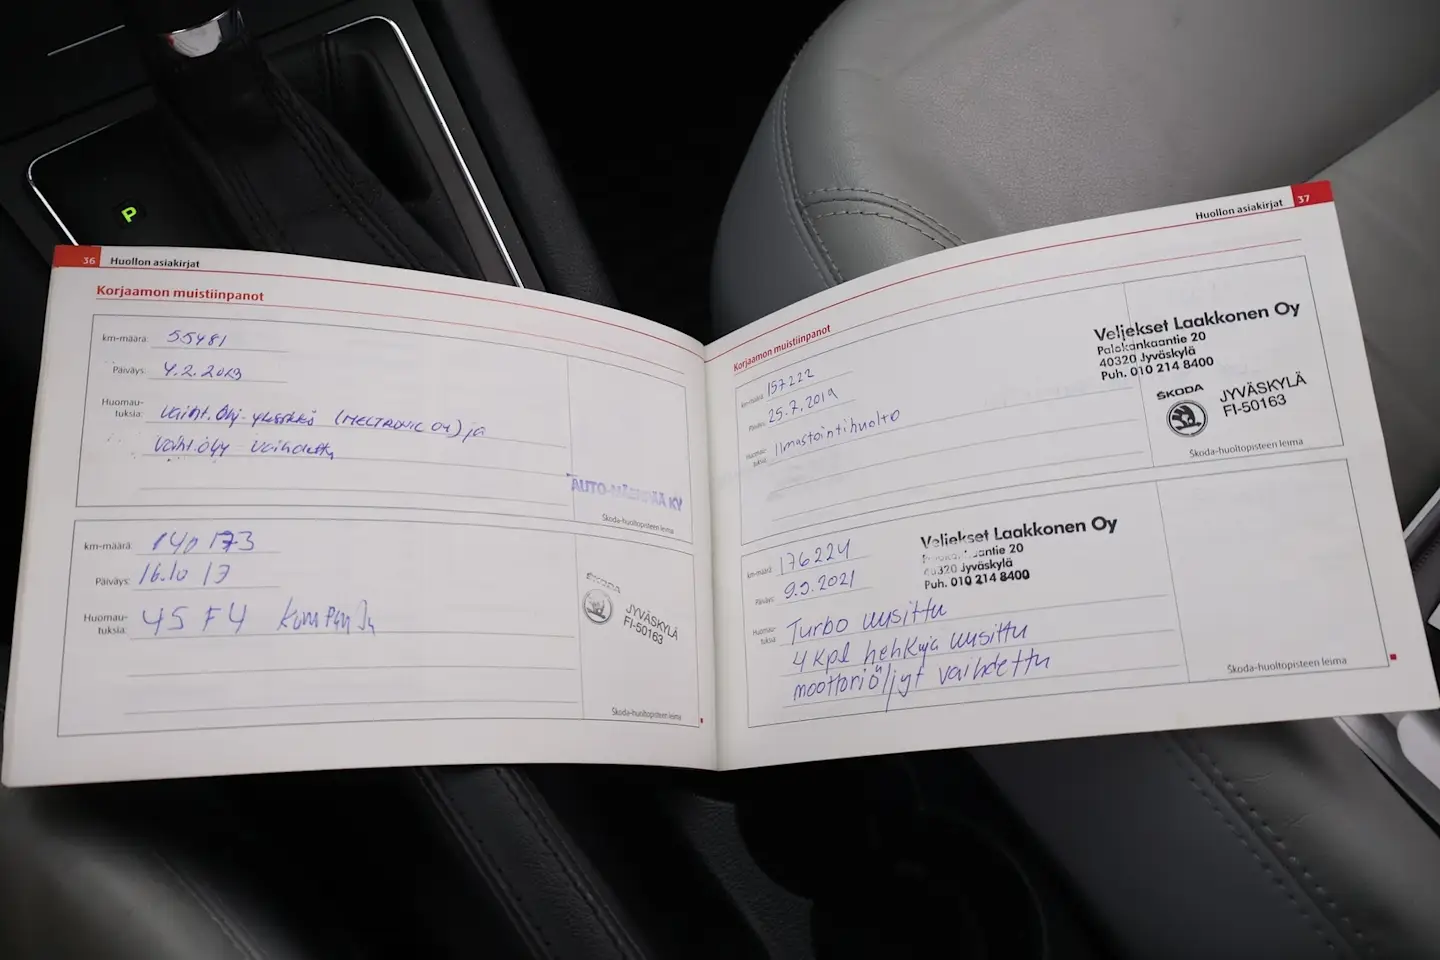 P
36 Huollon asiakirjat
Korjaamon muistiinpanot
km-määrä: 55481
Päiväys: 4.2.2013
Huomau-
tuksia: vaiht.Ölj-yksikkö (MECTRONIC OY) ja
vaiht.öljy vaihdettu
AUTO-MÄENPÄÄ KY
Skoda-huoltopisteen leima
km-määrä: 140 173
Päiväys: 16.10 17
Huomau-
tuksia: 45 F4
ŠKODA
JYVÄSKYLÄ
FI-50163
Skoda-huoltopisteen leima
Huollon asiakirjat 37
Korjaamon muistiinpanot
km-määrä: 157222
Päiväys: 25.7.2019
Huomau-
tuksia: Ilmastointihuolto
Veljekset Laakkonen Oy
Palokankaantie 20
40320 Jyväskylä
Puh. 010 214 8400
ŠKODA
JYVÄSKYLÄ
FI-50163
Skoda-huoltopisteen leima
km-määrä: 176224
Päiväys: 9.9.2021
Veljekset Laakkonen Oy
20
40320 Jyväskylä
Puh. 010 214 8400
Huomau-
tuksia: Turbo uusittu
4 kpl hehkuja uusittu
moottoriöljyt vaihdettu
Skoda-huoltopisteen leima